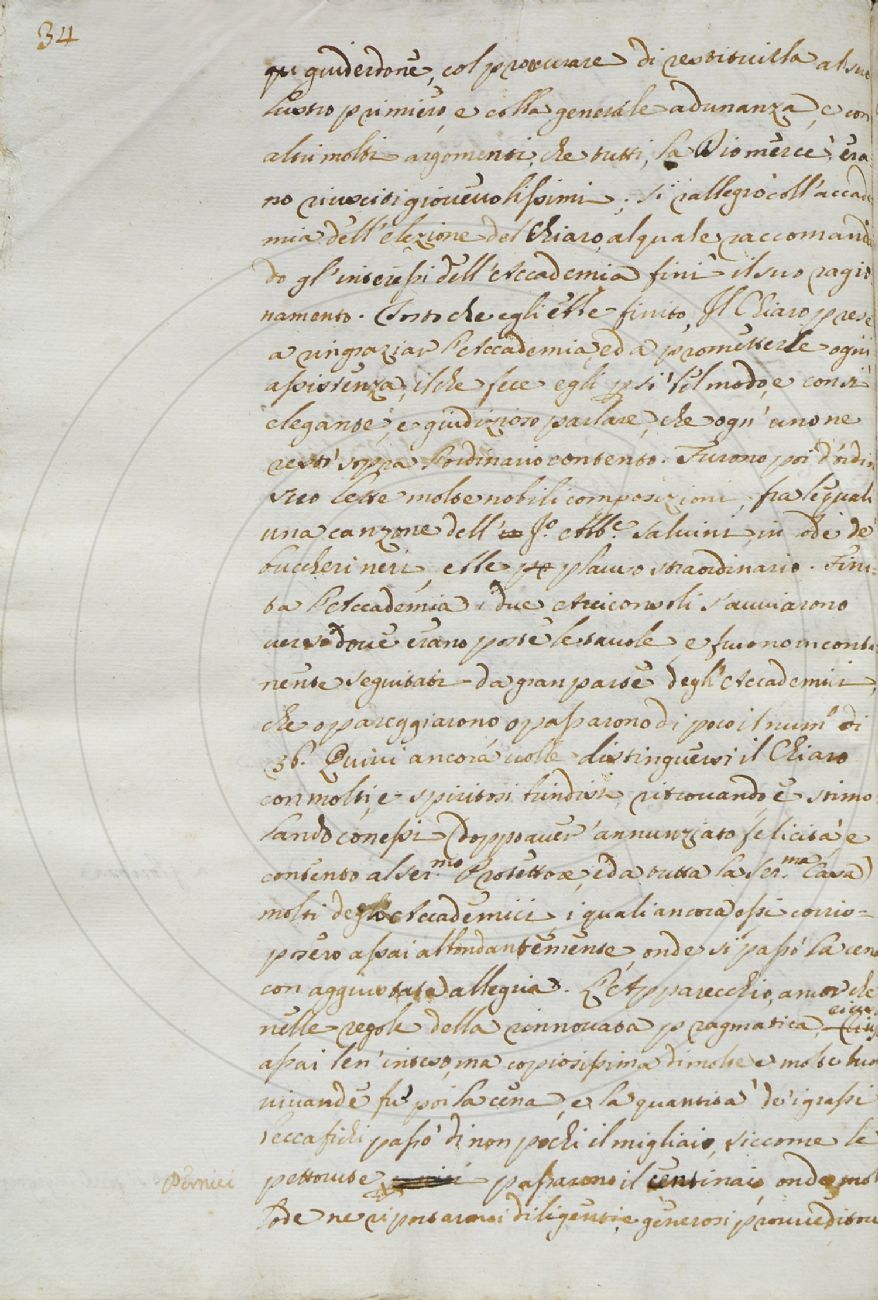 34
guiderdone, col procurare di restituirla al suo
lustro primiero, e colla generale adunanza, e con
altri molti argomenti, che tutti, la Dio mercè, era
no riusciti giovevolissimi; si rallegrò coll'accade
mia dell'elezione del Chiaro, al quale raccomanda
do gl'interessi dell'Accademia finì il suo ragio
namento. Tosto che egli ebbe finito, Il Chiaro prese
a ringraziar l'Accademia, ed a prometterle ogni
assistenza, il che fece egli p sì fil modo, e con sì
elegante, e giudizioso parlare, che ogn'uno ne
restò sopra l'ordinario contento. Furono poi d'ordin
lette molte nobili composizioni, fra le quali
una canzone dell' Abe. Salvini, in ode de
buccheri neri, e lle plauso straordinario. Fini=
ta l'Accademia i due Arciconsoli s'avviarono
verso dove erano poste le tavole e furono inconta
nente seguitati da gran parte degl'Accademici,
che o pareggiarono, o passarono di poco il num.o di
36. Quivi ancora volle distinguersi il Chiaro
con molti, e spiritosi brindisi, ritrovando e stimo
lando con essi (doppo aver' annunziato felicità e
contento al Ser.mo Protettore, ed a tutta la Ser.ma Casa)
molti degl'Accademici, i quali ancora essi corris=
posero assai abbondantemente, onde si passò la cena
con aggiustata allegria. L'Apparecchio, ancor che
nelle regole della rinnovata pragmatica,
assai ben inteso, ma copiosissima di molte e molte buo
vivande fu poi la cena, e la quantità de' i grassi
beccafichi passò di non pochi il migliaio, siccome le
Pernici
pettorute passarono il centinaio, onde mol
lode ne riportarono i diligenti, e generosi provveditori